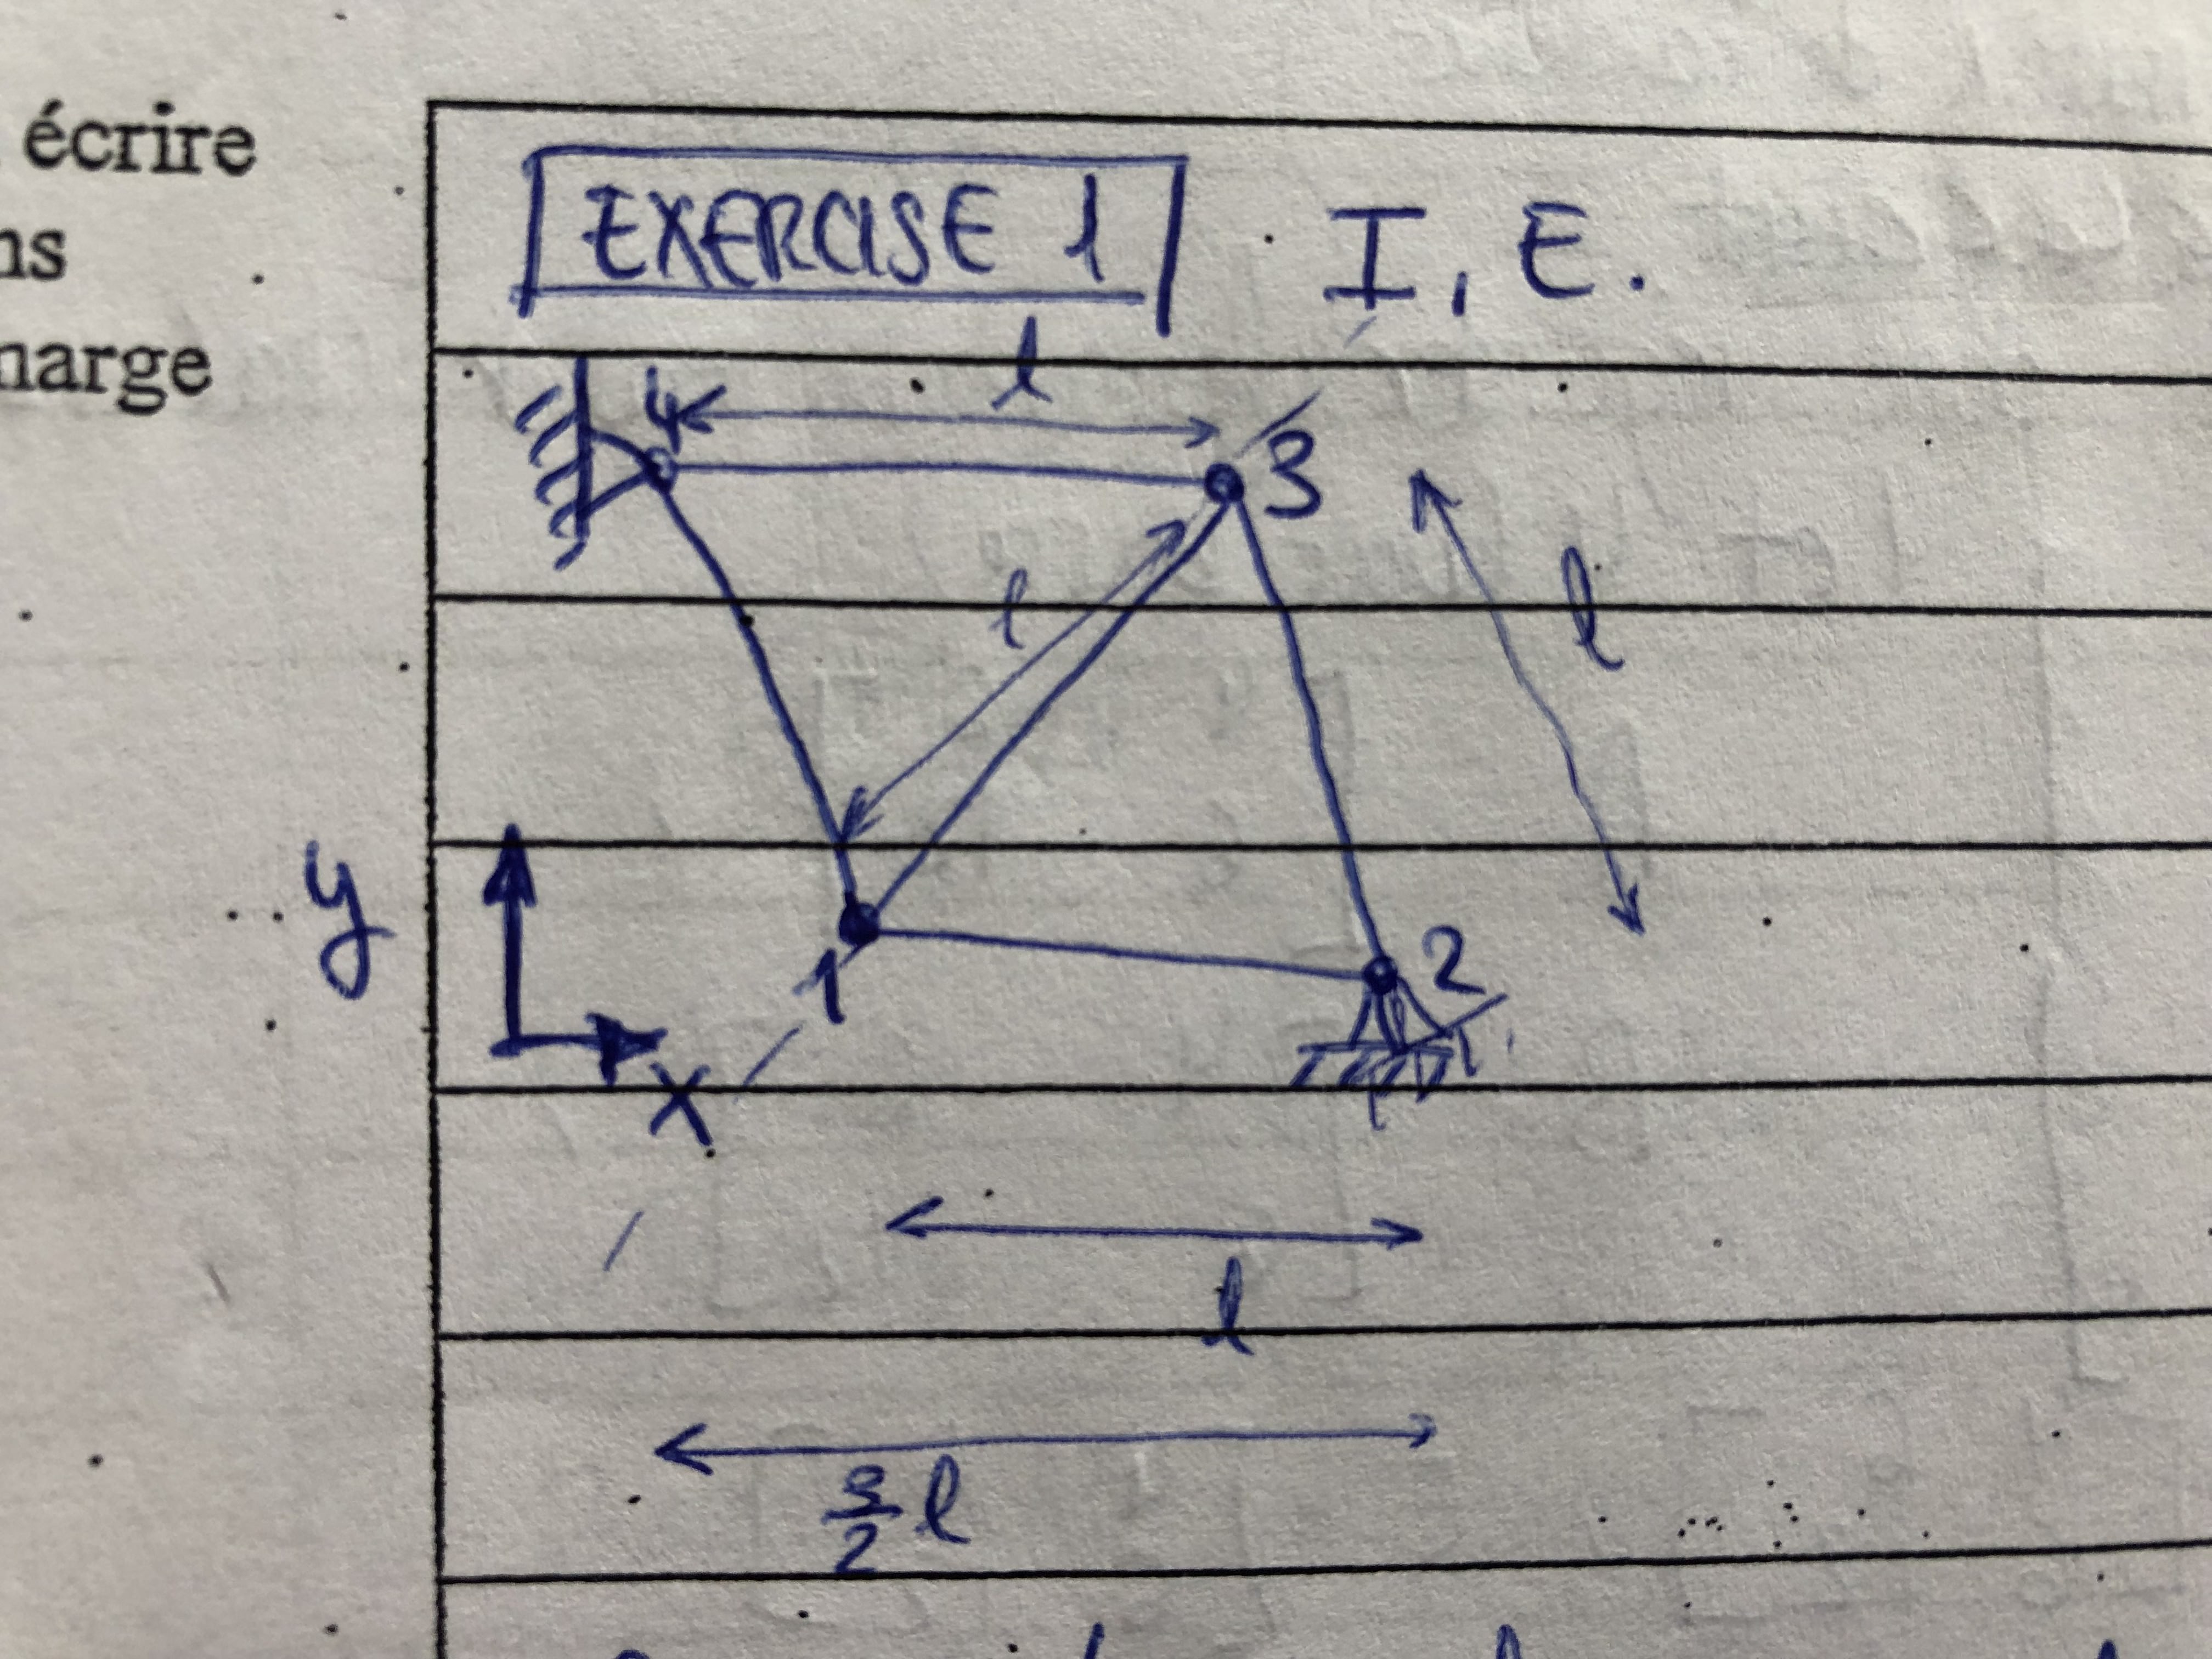 écrire
ns
marge
EXERCISE 1 I, E.
l
4
3
l
l
y
1
2
x
l
3/2 l